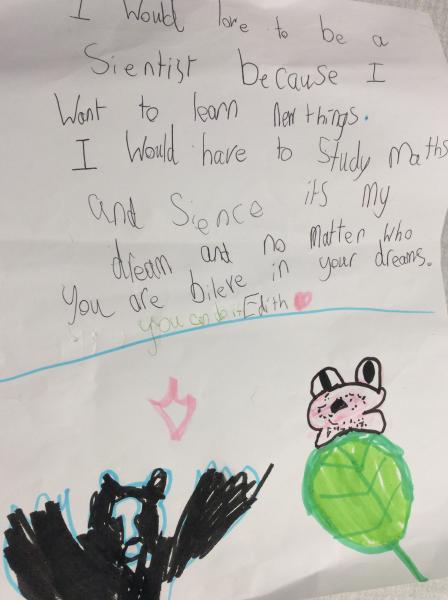 I Would love to be a
Sientist because I
Want to learn new things.
I Would have to Study Maths
and Sience its my
dream and no matter who
you are bileve in your dreams.
you can do it Edith